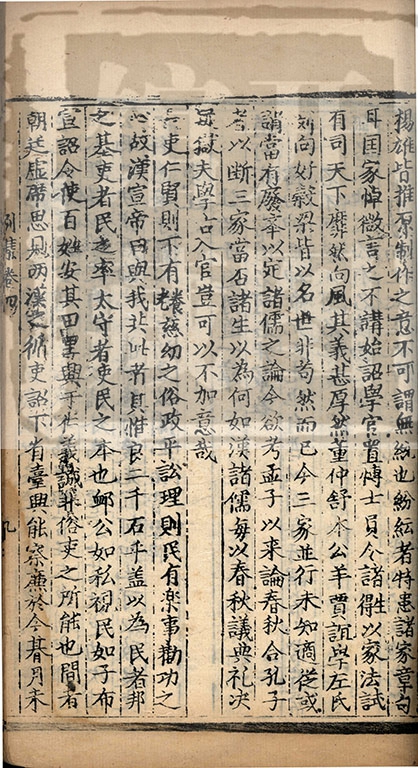 楊雄皆推原制作之意不可謂無統也紛紜者特患諸家章句
耳国家悼微言之不講始詔學官置博士員令諸得生以家法試
有司天下靡然向風其義甚厚然董仲舒本公羊賈誼學左氏
劉向好穀梁皆以名世非苟然而已今三家並行未知適從或
謂當有廢本以定諸儒之論今欲考孟子以來論春秋合孔子
者以断三家當否諸生以為何如漢諸儒每以春秋議典礼决
疑獄夫學古入官豈可以不加意哉
吏仁賢則下有養慈幼之俗政平訟理則民有楽事勸功之
心故漢宣帝曰與我共此者其惟良二千石乎盖以為民者邦
之基吏者民之率太守者吏民之本也郷公如私視民如子布
宣詔令使百姓安其田畢興于仁義誠非俗吏之所能也間者
朝廷虚席思見两漢之循吏詔下省臺興能察廉於今朞月未
列集卷四 九